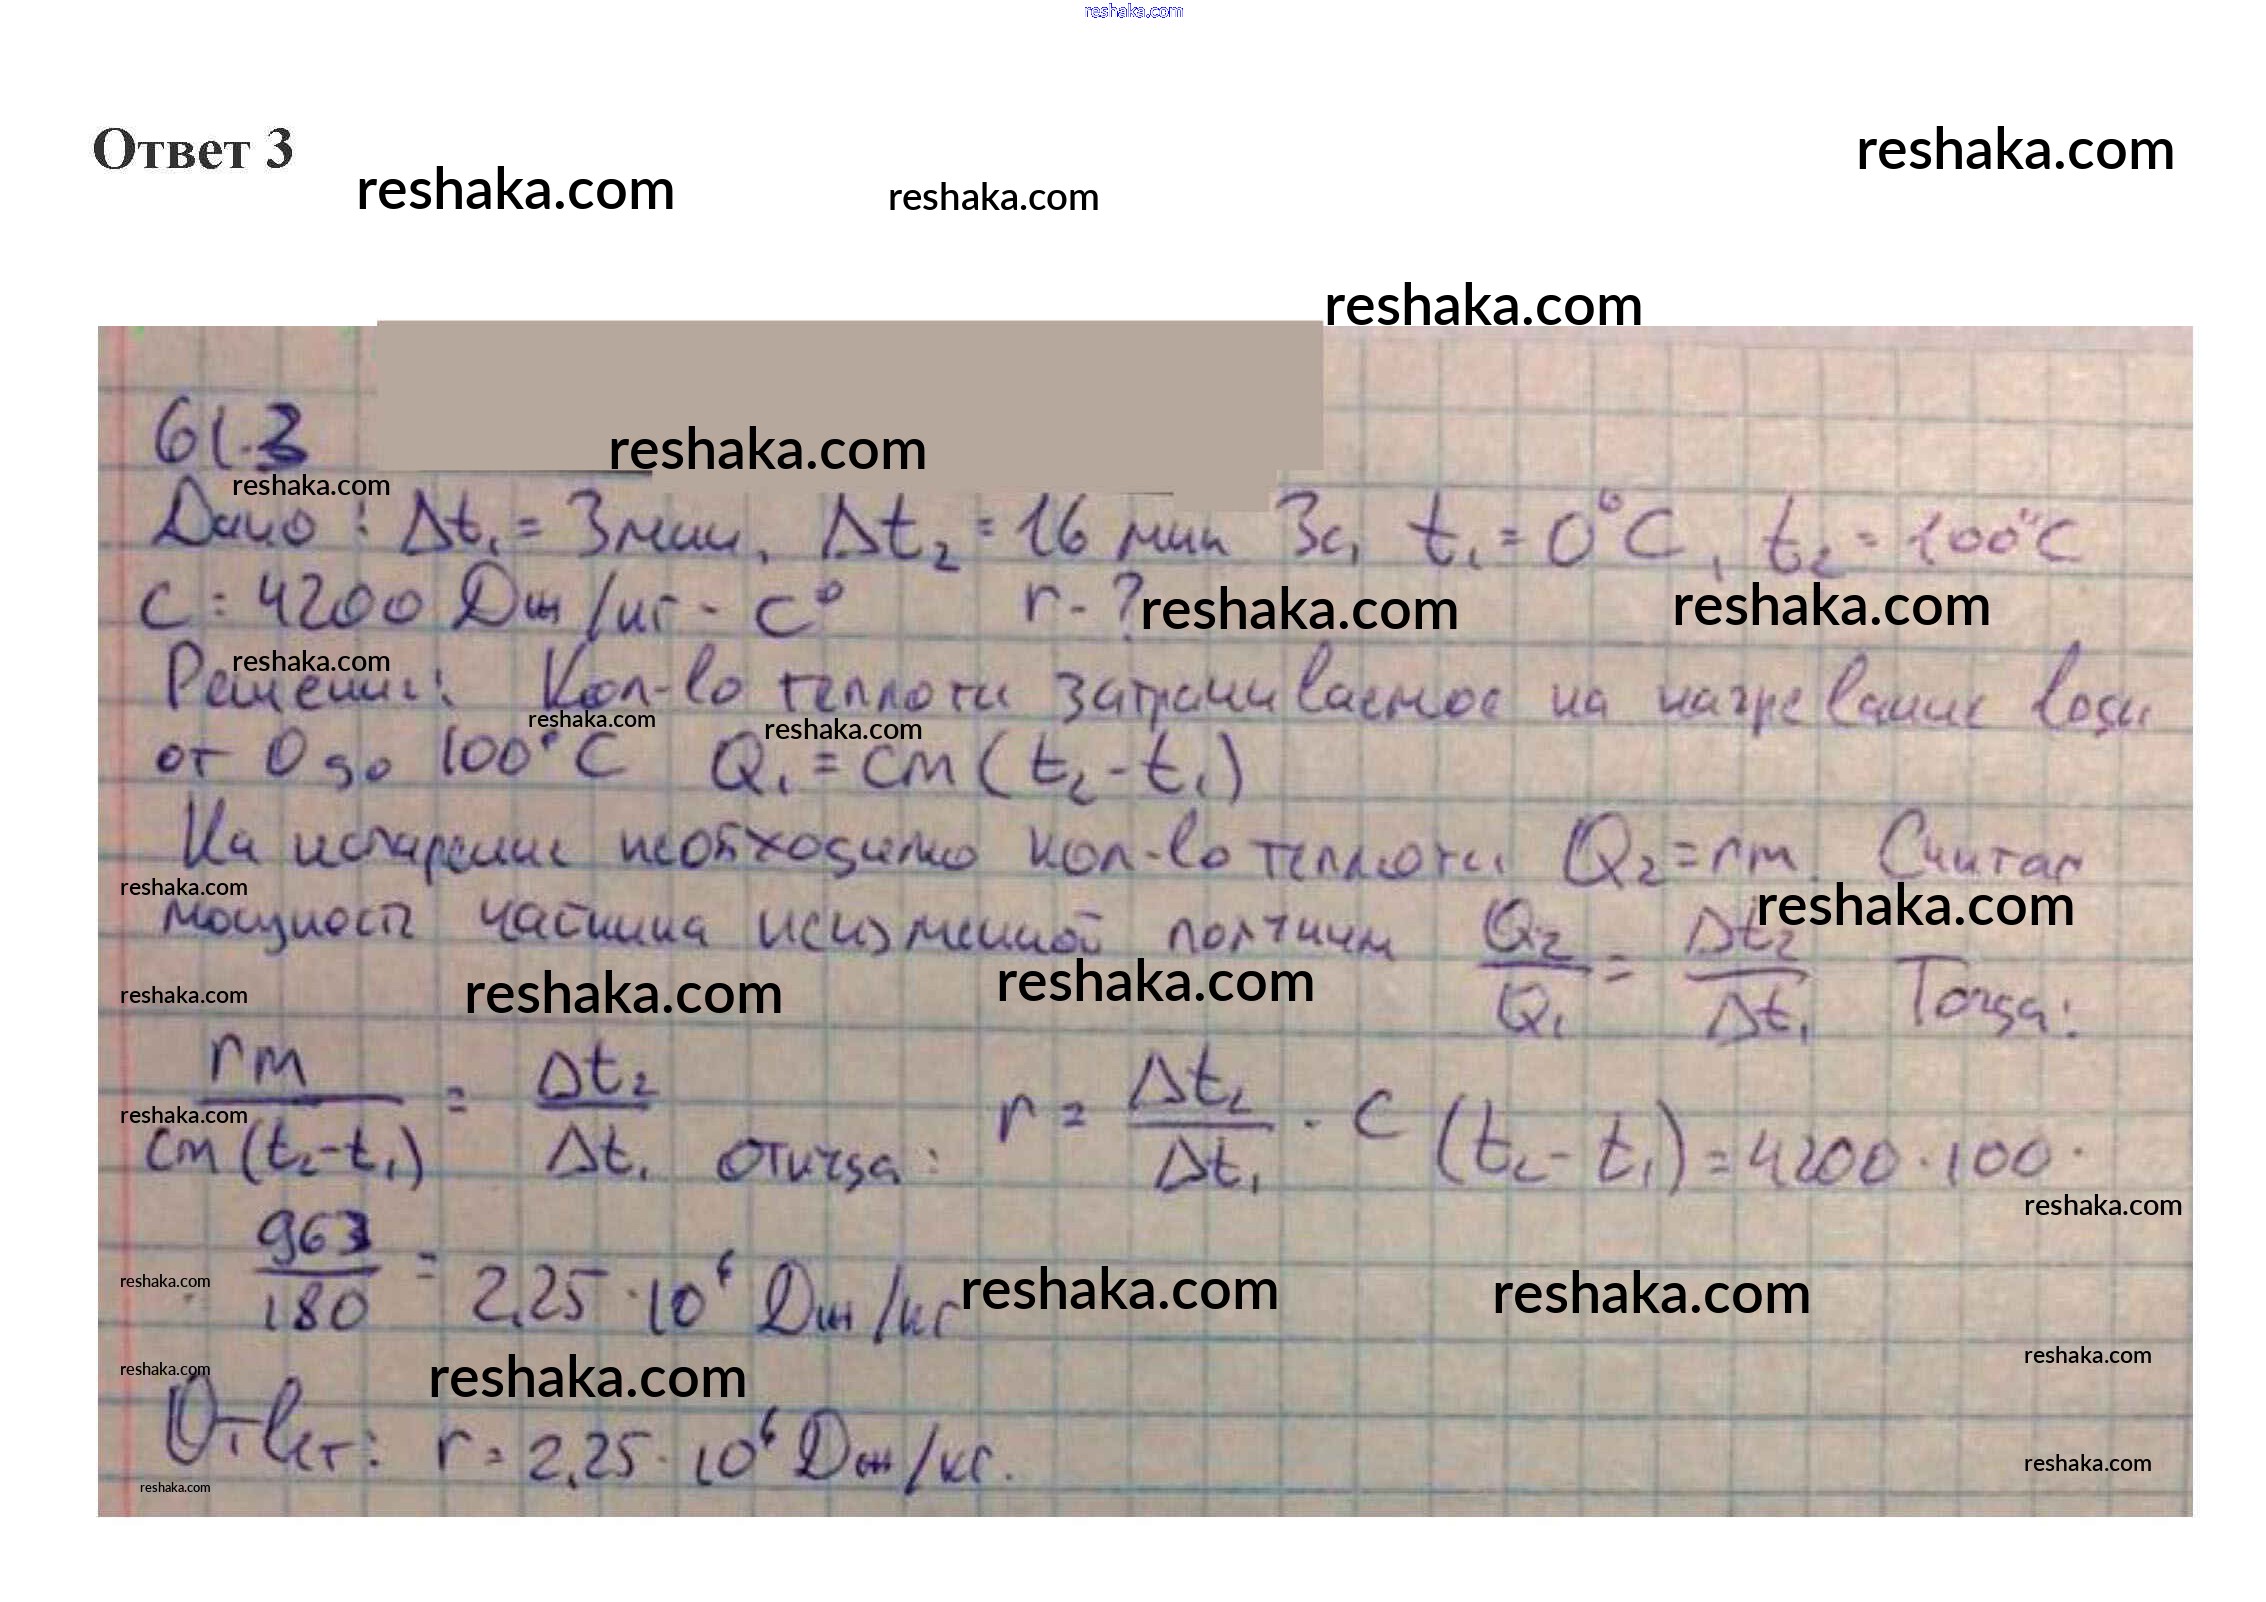 reshaka.com
Ответ 3
reshaka.com
reshaka.com
reshaka.com
reshaka.com
61.3
reshaka.com
reshaka.com
Дано: Δt₁ = 3 мин, Δt₂ = 16 мин 3с, t₁ = 0°C, t₂ = 100°C
c = 4200 Дж/кг · C° r - ?
reshaka.com
reshaka.com
reshaka.com
Решение: Кол-во теплоты затрачиваемое на нагревание воды
reshaka.com
reshaka.com
от 0 до 100°C Q₁ = cm(t₂ - t₁)
На испарение необходимо кол-во теплоты Q₂ = rm. Считая
reshaka.com
reshaka.com
мощность чайника неизменной получим Q₂/Q₁ = Δt₂/Δt₁ Тогда:
reshaka.com
reshaka.com
reshaka.com
rm/cm(t₂-t₁) = Δt₂/Δt₁ откуда: r = Δt₂/Δt₁ · c (t₂ - t₁) = 4200 · 100 ·
reshaka.com
reshaka.com
· 963/180 = 2,25 · 10⁶ Дж/кг
reshaka.com
reshaka.com
reshaka.com
reshaka.com
reshaka.com
reshaka.com
Ответ: r = 2,25 · 10⁶ Дж/кг.
reshaka.com
reshaka.com